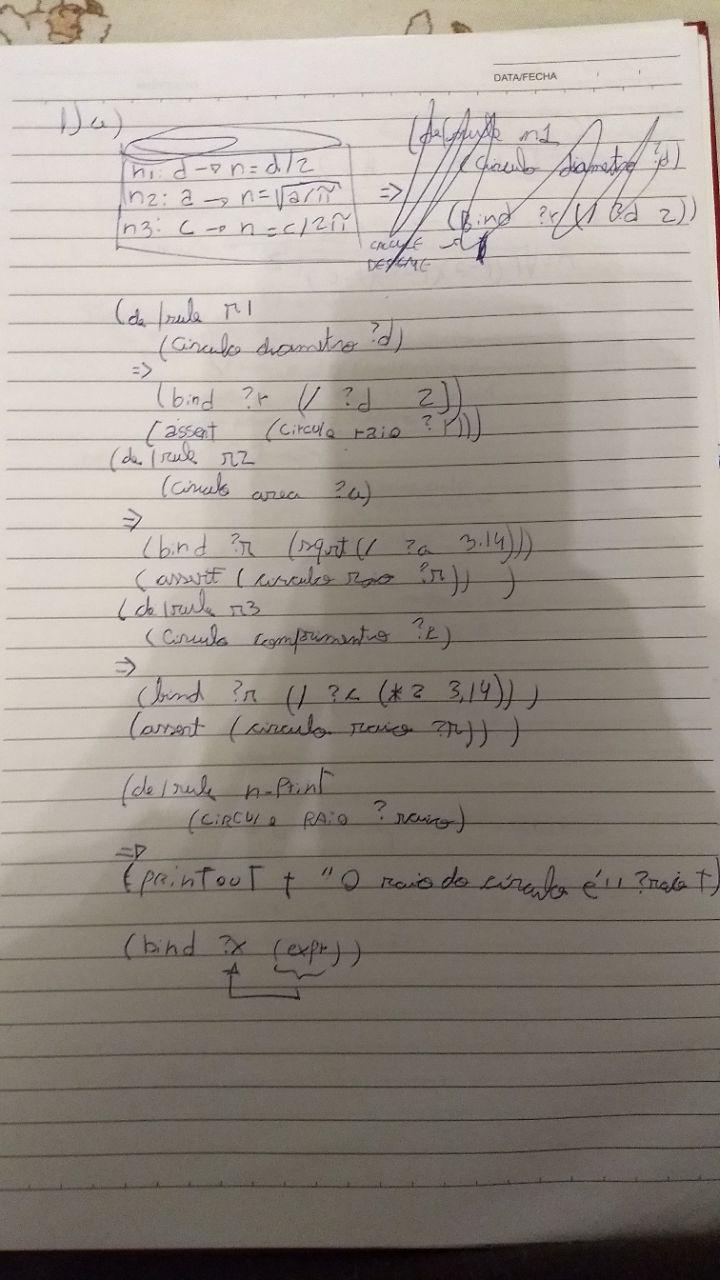 DATA/FECHA
1) a)
r1: d → r = d/2
r2: a → r = √a/π
r3: c → r = c/2π
=>
(defrule r1
(circulo diametro ?d)
(Bind ?r (/ ?d 2))
(defrule r1
(circulo diametro ?d)
=>
(bind ?r (/ ?d 2))
(assert (circulo raio ?r)))
(defrule r2
(circulo area ?a)
=>
(bind ?r (sqrt (/ ?a 3.14)))
(assert (circulo raio ?r)) )
(defrule r3
(circulo comprimento ?c)
=>
(bind ?r (/ ?c (* 2 3,14)) )
(assert (circulo raio ?r)) )
(defrule r-Print
(CIRCULO RAIO ?raio)
=>
(PRINTOUT t "O raio do círculo é" ?raio t)
(bind ?x (expr))